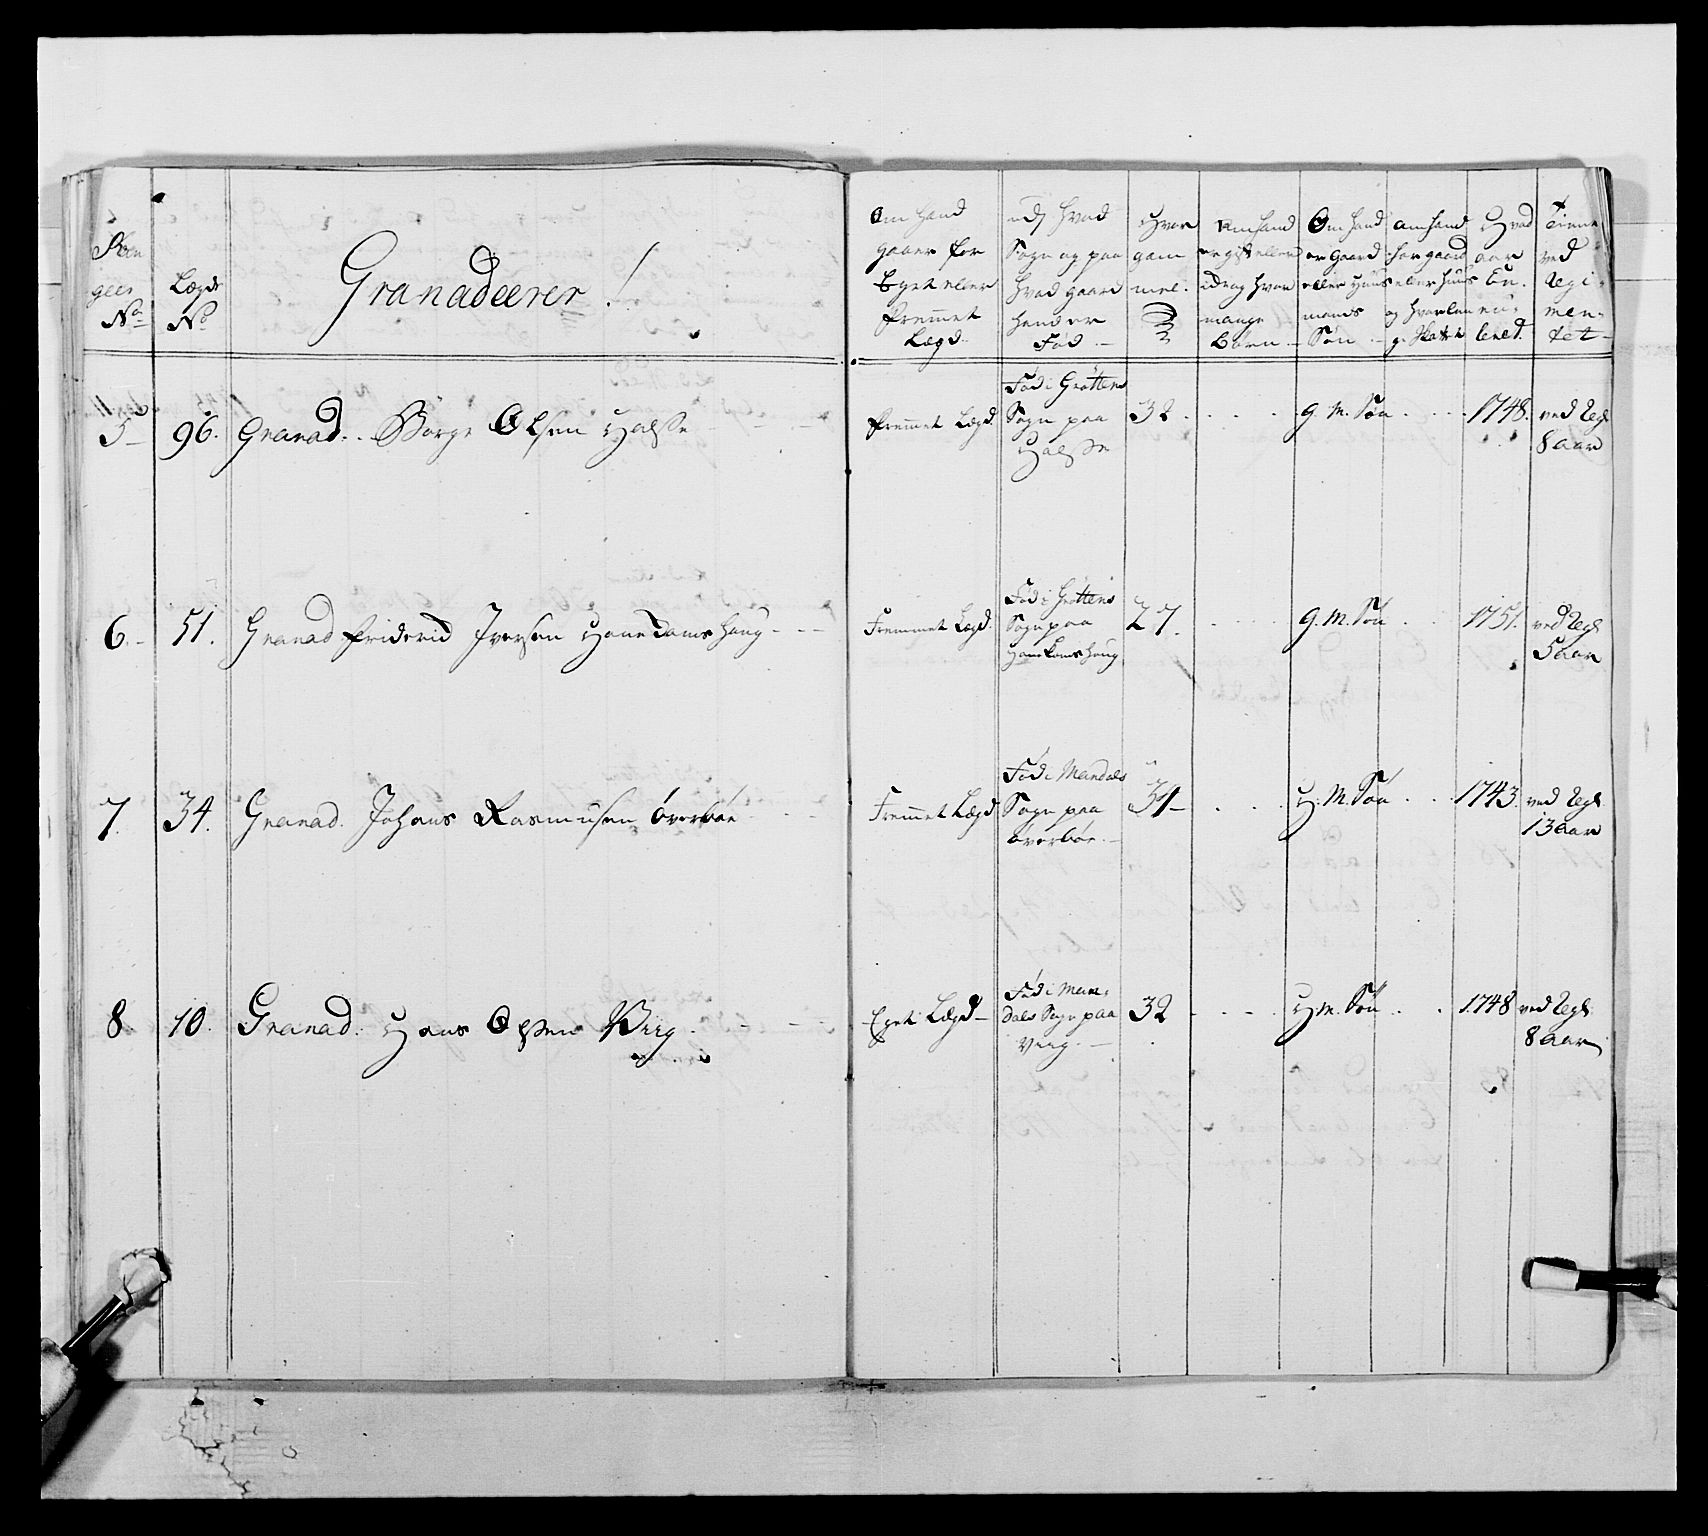 Ran
gees
No
Lægds
No
Granadeerer!
Om hand
gaaer for
Eget eller
fremmet
Lægd
udj hvad
Sogn og paa
hvad gaard
hand er
Fød
Hvor
gam
mel.
Om hand
er gift eller
id og hvor
mange
Børn
Om hand
er Gaard
eller Huus
mands
Søn
om hand
har gaard
eller huus
og hvor lan
g. Skatter
Hvad
aar
En
rul
leret.
Tiene
ved
Regi
men-
tet
5 96. Granad. Børge Olsen Halsse fremmet Lægd. Fød i Grøttens Sogn paa Halsse 32 G. M. Søn 1748. ved Regt. 8 aar
6 51. Granad friderid Iversen Hanedams haug Fremmet Lægd. Fød i Grøttens Sogn paa Hanedams haug 27 G. M. Søn 1751. ved Regt. 5 aar
7. 34. Granad. Johans Rasmusen Øverbøe Fremmet Lægd Fød i Mandals Sogn paa Øverbøe 31 H. M. Søn 1743. ved Regt. 13 aar
8 10. Granad. Hans Olssen Viig Eget Lægd Fød i Man- dals Sogn paa Viig 32 H. M. Søn 1748 ved Regt. 8 aar